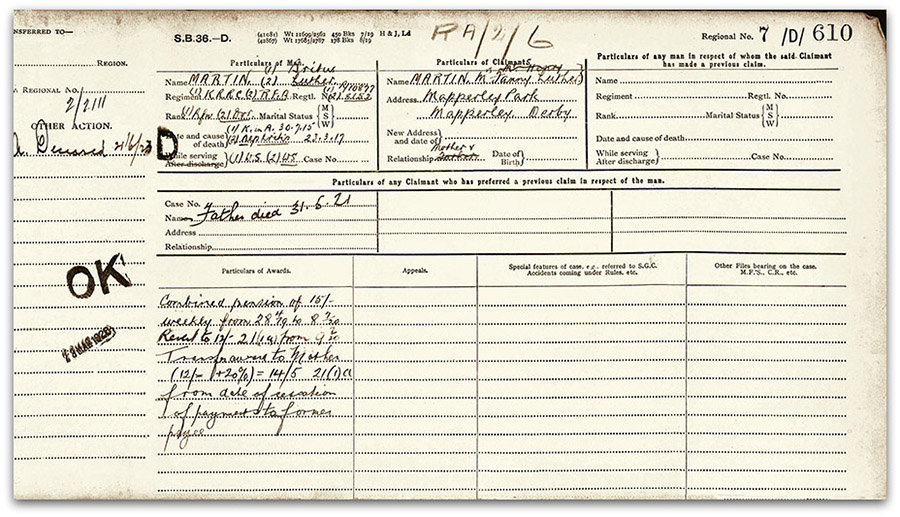 NSFERRED TO—
REGION.
A REGIONAL NO.
2/2111
OTHER ACTION.
Deceased
D
OK
S.B.36.—D.
(41081) Wt 21699/2562 450 Bks 7/29 H & J, Ld
(41867) Wt 17685/2787 178 Bks 8/29
RA/2/6
Regional No. 7 /D/ 610
Particulars of Man.
(1) Bridue
Name MARTIN. (2) Luther
Regiment (1) K.R.R.C. (2) R.F.A. Regtl. No.
Rank Marital Status { M S W
Date and cause of death } (1) K. in A. 30.7.15
(2) Nephritis 23.3.17
While serving
After discharge } (1) W.S. (2) W.S. Case No.
Particulars of Claimants
Name MARTIN Mr Henry Luther
Address Mapperley Park
Mapperley. Derby
New Address and date
Relationship Mother Date of Birth }
Particulars of any man in respect of whom the said Claimant has made a previous claim.
Name
Regiment Regtl. No.
Rank Marital Status { M S W
Date and cause of death
While serving
After discharge } Case No.
Particulars of any Claimant who has preferred a previous claim in respect of the man.
Case No.
Name Father died 31.5.21
Address
Relationship
Particulars of Awards.
Appeals.
Special features of case, e.g., referred to S.G.C. Accidents coming under Rules, etc.
Other Files bearing on the case. M.F.'S., C.R., etc.
Combined pension of 15/-
weekly from 28 to 8
12/- 21(1)(a) from 9
Transf award to Mother
(12/- + 20%) = 14/5 21(1)a
from date of cessation
of payment to former
payee